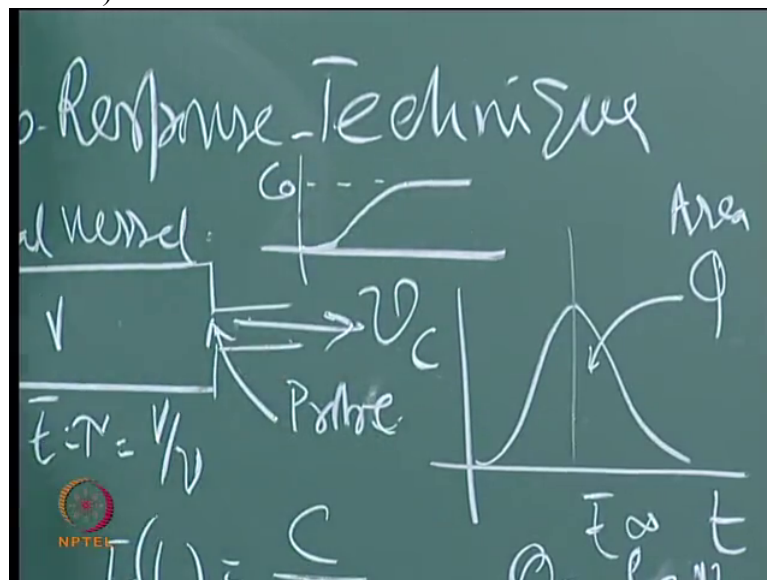 Response Technique
C₀
Area
al Vessel:
Q
V
v
C
Probe
t̄ = τ = V/v
t̄
t
NPTEL
C